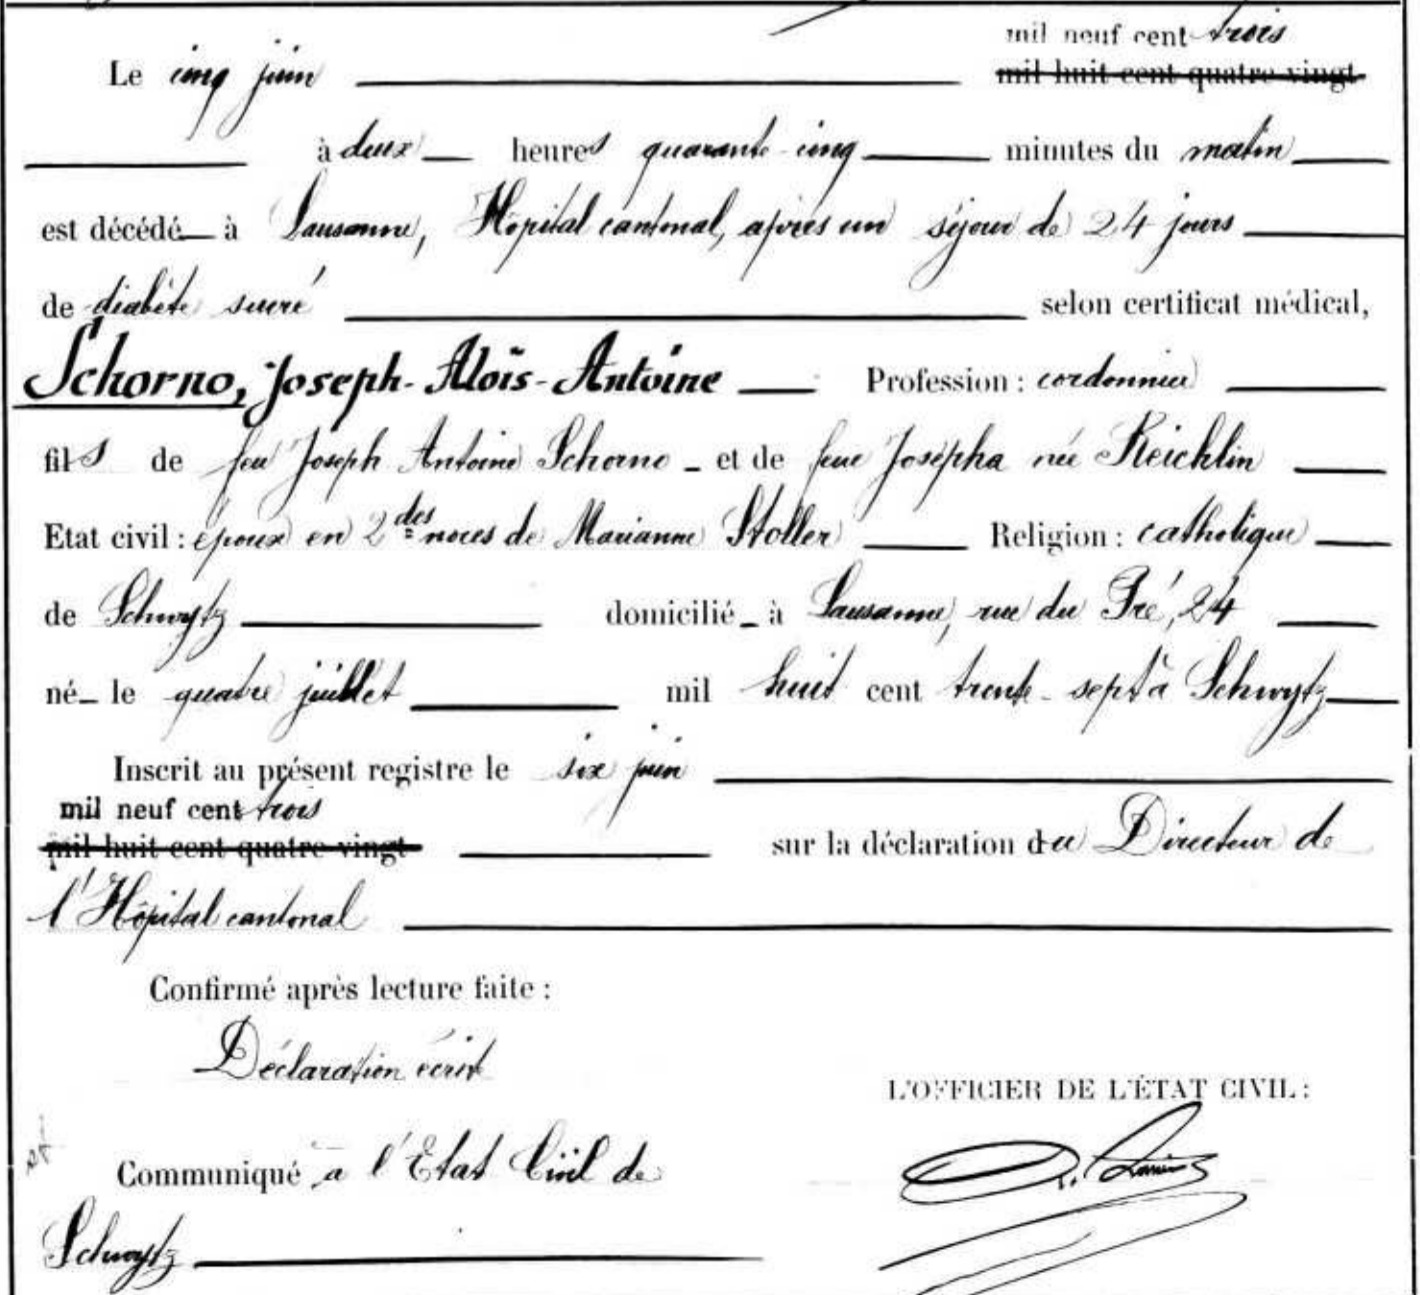 mil neuf cent trois
Le cinq juin mil huit cent quatre-vingt
à deux heures quarante-cinq minutes du matin
est décédé à Lausanne, Hôpital cantonal, après un séjour de 24 jours
de diabète sucré selon certificat médical,
Schorno, Joseph-Aloïs-Antoine Profession : cordonnier
fils de feu Joseph Antoine Schorno - et de feue Josépha née Reichlin
Etat civil : époux en 2des noces de Marianne Stoller Religion : catholique
de Schwytz domicilié à Lausanne, rue du Pré, 24
né le quatre juillet mil huit cent trente-sept à Schwytz
Inscrit au présent registre le six juin
mil neuf cent trois
mil huit cent quatre-vingt sur la déclaration du Directeur de
l'Hôpital cantonal
Confirmé après lecture faite :
Déclaration écrite
L'OFFICIER DE L'ÉTAT CIVIL :
Communiqué à l'Etat Civil de
Schwytz